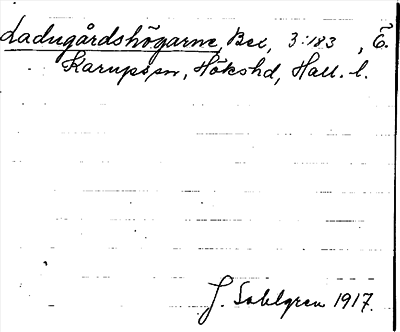 Ladugårdshögarne, Bec, 3:183, Ö.
Karups sn, Hökshd, Hall. l.
J. Sahlgren 1917.